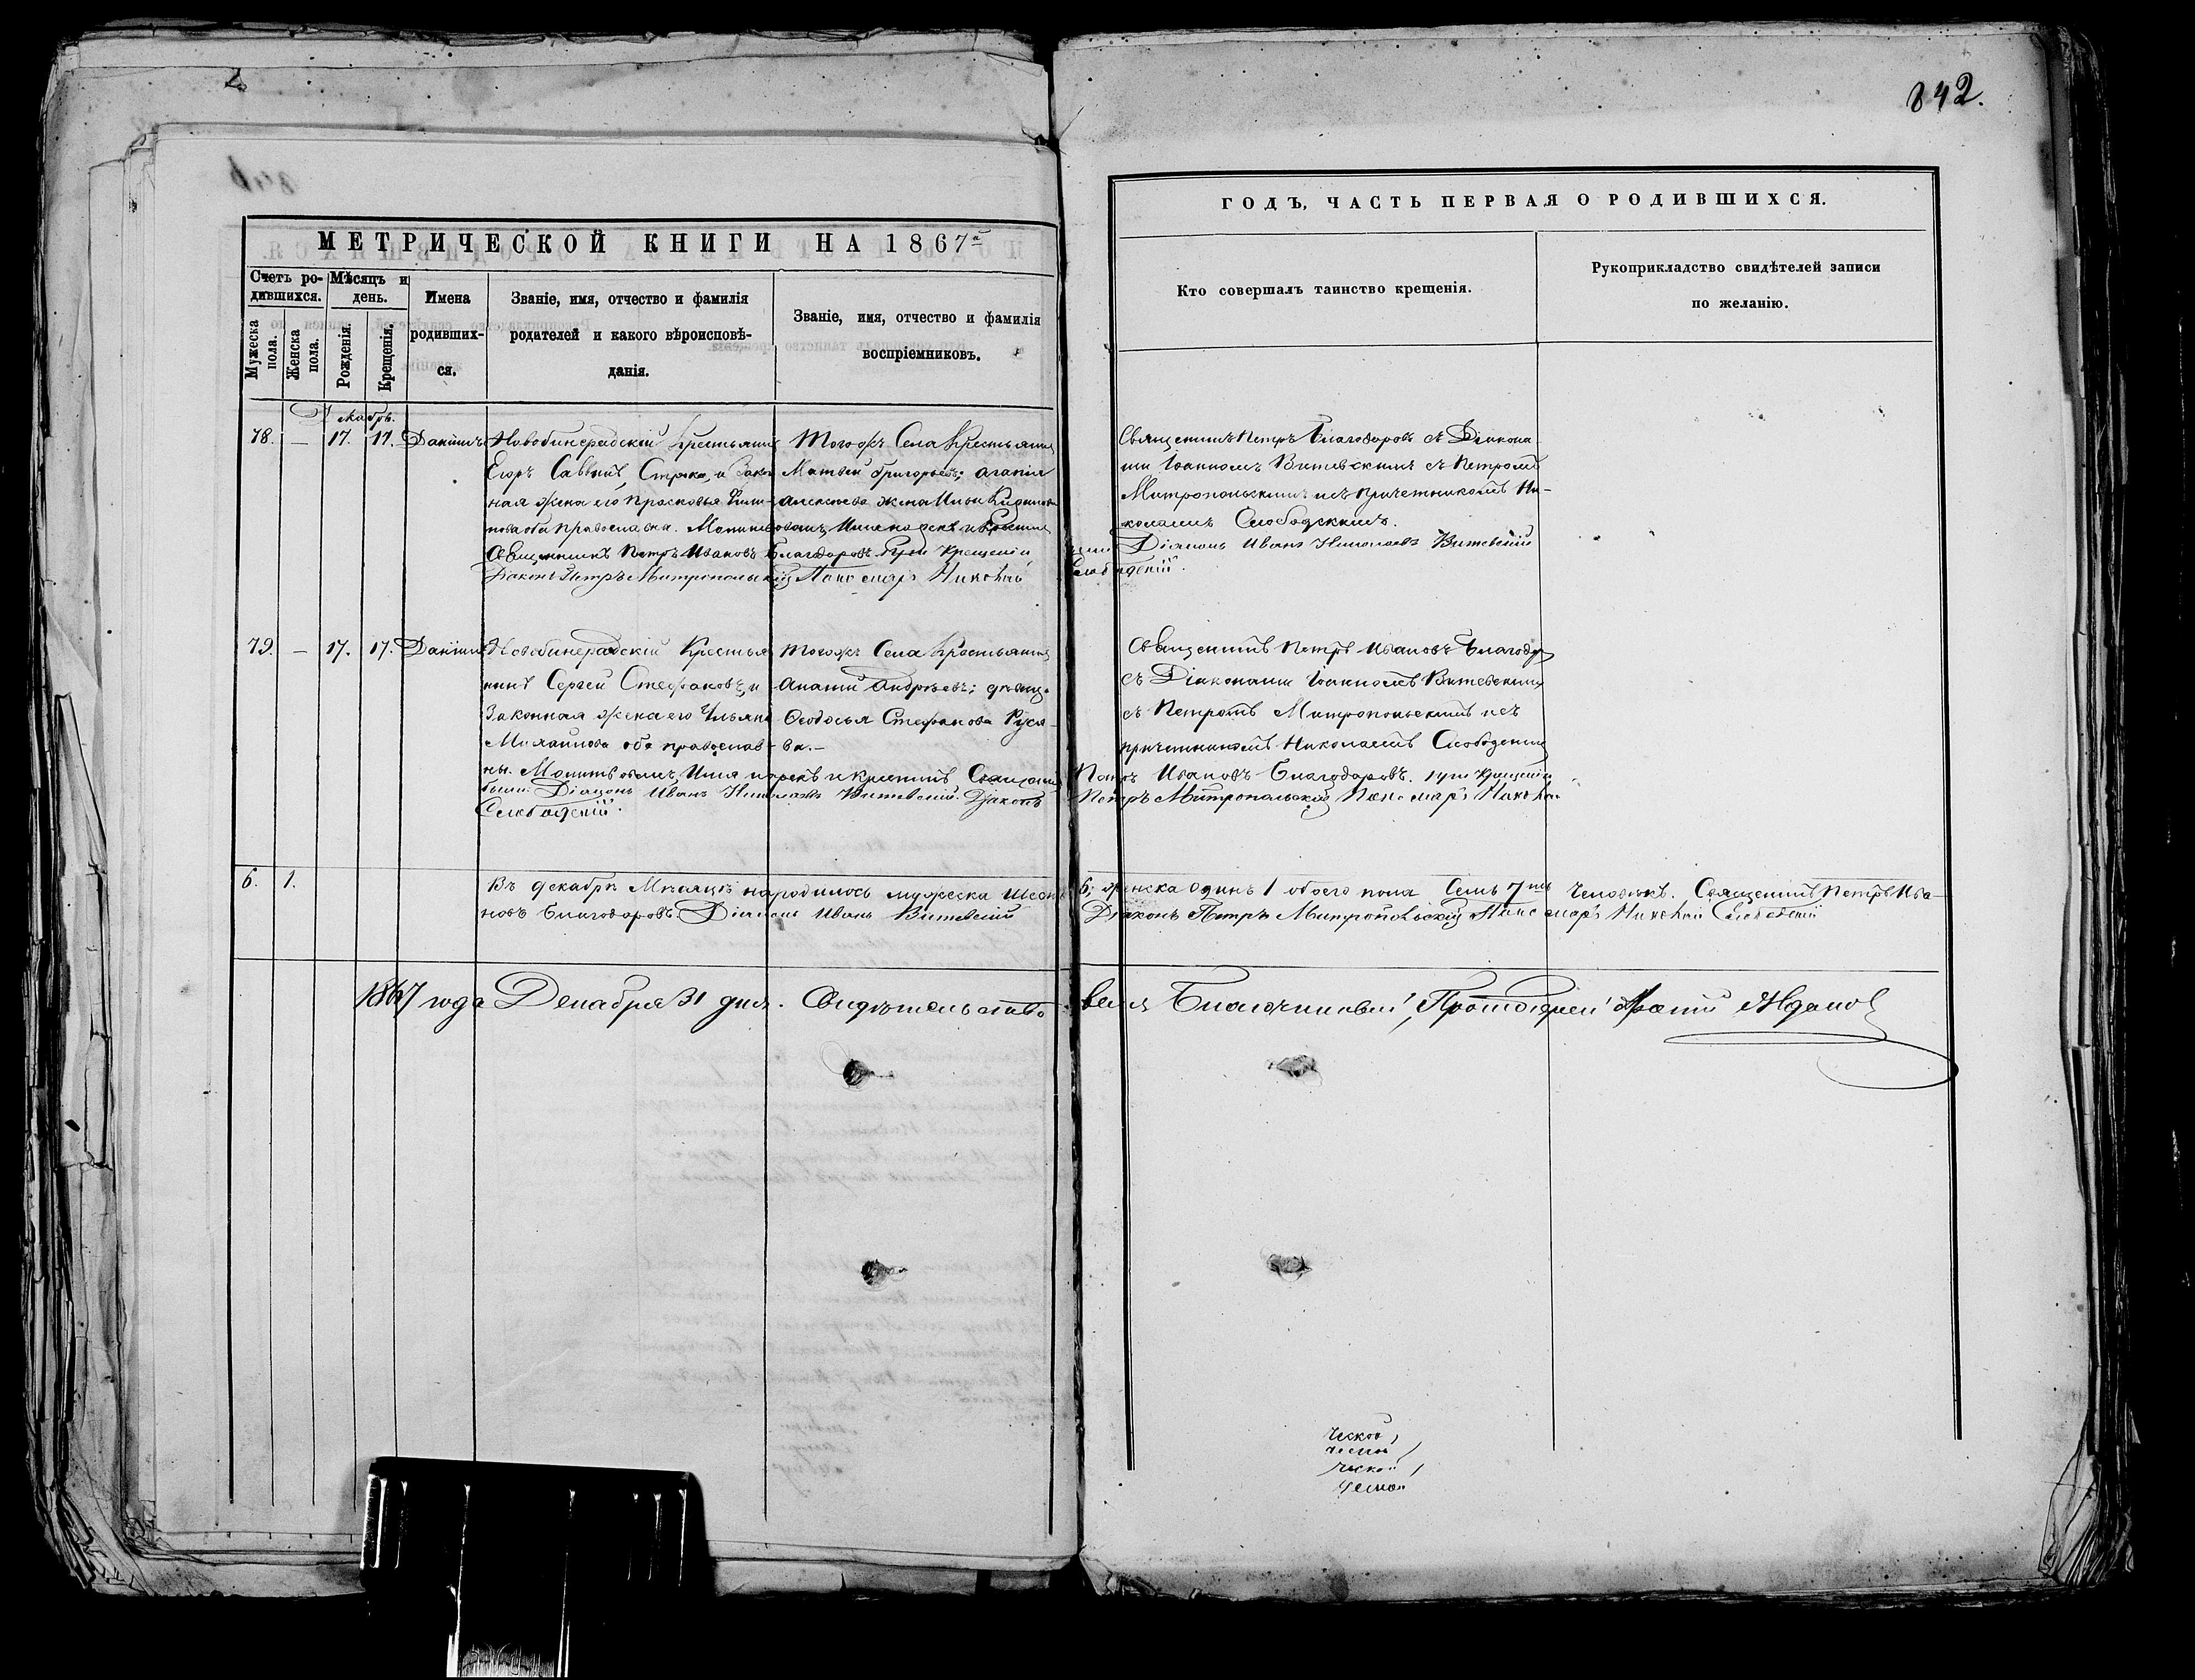 842.
МЕТРИЧЕСКОЙ КНИГИ НА 1867й
ГОДЪ, ЧАСТЬ ПЕРВАЯ О РОДИВШИХСЯ.
Счетъ ро-
дившихся.
Мужеска пола.
Женска пола.
Мѣсяцъ и
день.
Рожденія.
Крещенія.
Имена
родивших-
ся.
Званіе, имя, отчество и фамилія
родителей и какого вѣроисповѣ-
данія.
Званіе, имя, отчество и фамилія
воспріемниковъ.
Кто совершалъ таинство крещенія.
Рукоприкладство свидѣтелей записи
по желанію.
Декабрь.
78. — 17. 17. Даніилъ
Новобинерадскій Крестьянинъ
Егоръ Саввинъ, и Закон
ная жена его Прасковья
нова оба православна.
Священникъ Петръ Ивановъ Благодаровъ при Крещеніи
Діаконъ Петръ Митропольскій Пономарь Николай
Тогожъ Села Крестьянинъ
Матвей Григорьевъ; Агапія
Алексѣева жена
Священникъ Петръ Благодаровъ съ Діакона
ми Іоанномъ Витевскимъ съ Петромъ
Митропольскимъ и съ причетникомъ Ни-
колаемъ Слободскимъ.
были Діаконъ Иванъ Николаевъ Витевскій
Слободскій.
79. — 17. 17. Даніилъ
Новобинерадскій Крестья
нинъ Сергей Стефановъ, и
Законная жена его Ульяна
Михайлова оба православ-
ны. Молитвовалъ, Имя нарекъ и Крестилъ Священ
были: Діаконъ Иванъ Николаевъ Витевскій. Діаконъ
Слободскій.
Тогожъ Села Крестьянинъ
Ананій Андрѣевъ; дѣвица
Ѳеодосья Стефанова Руся-
ва.—
Священникъ Петръ Ивановъ Благодар
съ Діаконами Іоанномъ Витевскимъ
съ Петромъ Митропольскимъ и съ
причетникомъ Николаемъ Слободскимъ
Петръ Ивановъ Благодаровъ. при Крещеніи
Петръ Митропольскій Пономарь Николай
6. 1. Въ декабрѣ Мѣсяцѣ народилось мужеска Шесть 6; женска одинъ 1 обоего пола Семь 7мь Человѣкъ. Священникъ Петръ Ива-
новъ Благодаровъ. Діаконъ Иванъ Витевскій Діаконъ Петръ Митропольскій Пономарь Николай Слободскій
1867 года Декабря 31 дня. Свидѣтельство- валъ Благочинный, Протоіерей
ческой
ческой
ческой
ческой